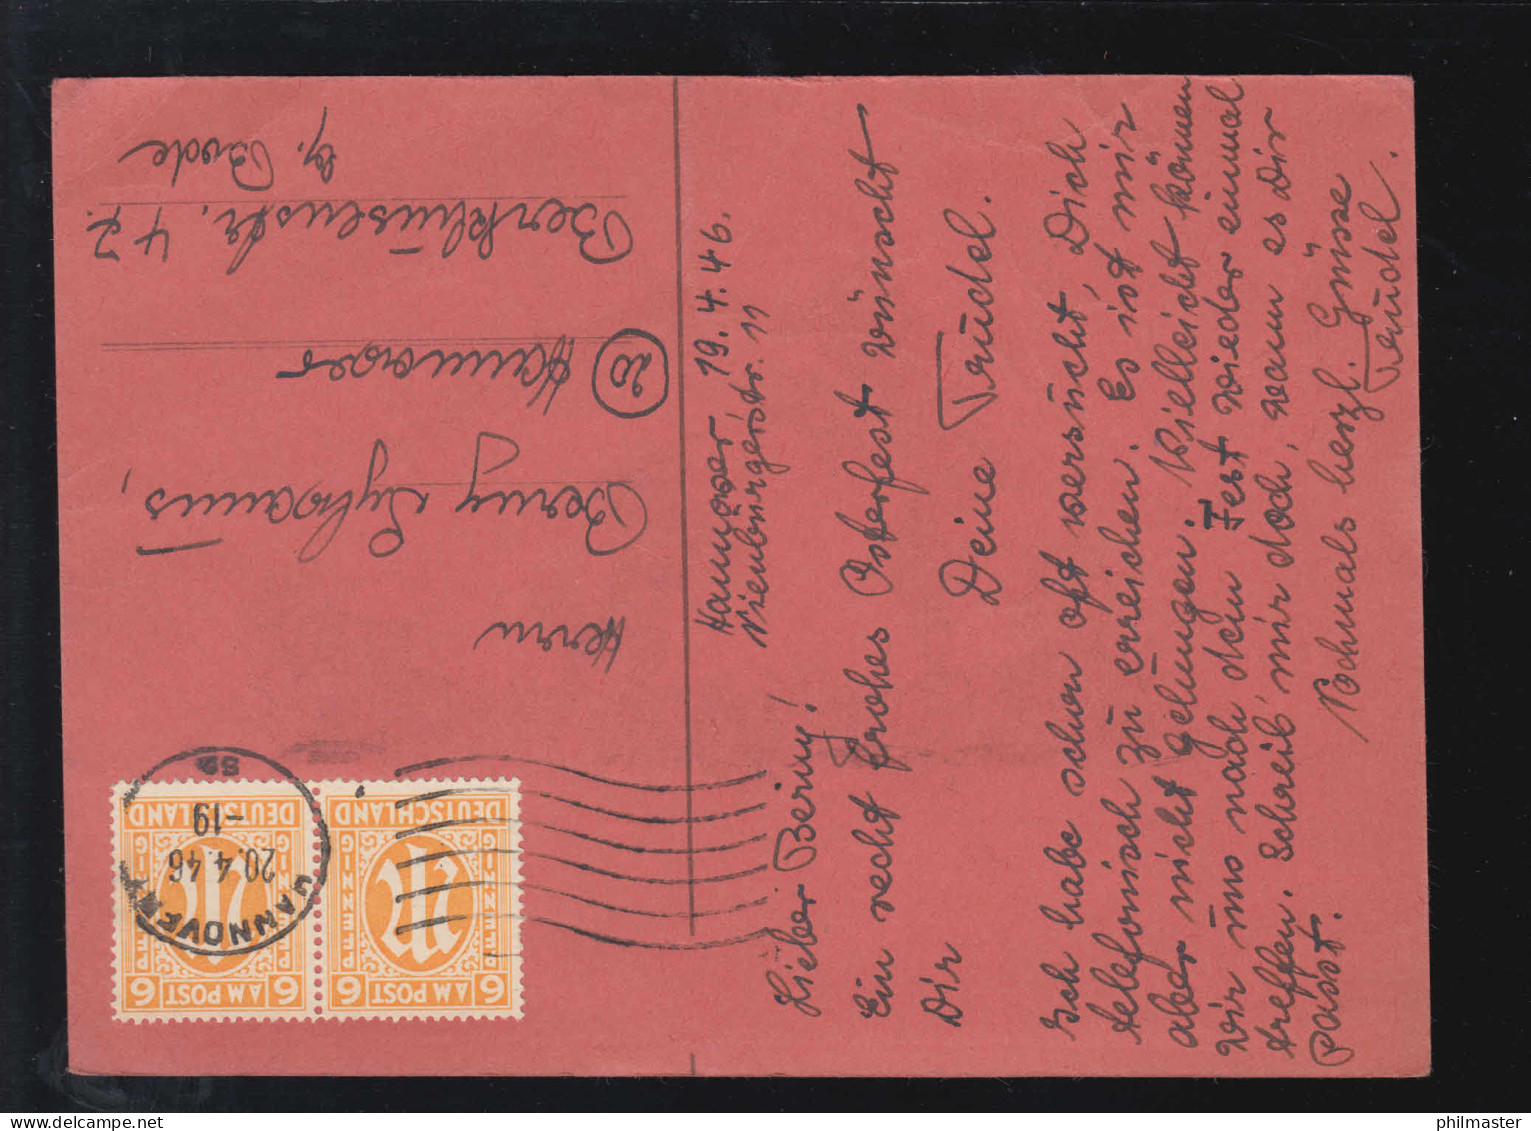 Hannover 19.4.46.
Nienburgerstr. 11
Lieber Berny!
Ein recht frohes Osterfest wünscht
Dir
Deine Trudel.
Ich habe schon oft versucht, Dich
telefonisch zu erreichen. Es ist mir
aber nicht gelungen. Vielleicht können
wir uns nach dem Fest wieder einmal
treffen. Schreib' mir doch, wann es Dir
passt.
Nochmals herzl. Grüsse
Trudel.
Herrn
Berny
(20) Hannover
47.
b. Bode
6 AM POST 6
PF
DEUTSCHLAND
6 AM POST 6
PF
DEUTSCHLAND
HANNOVER
20.4.46
-19
philmaster